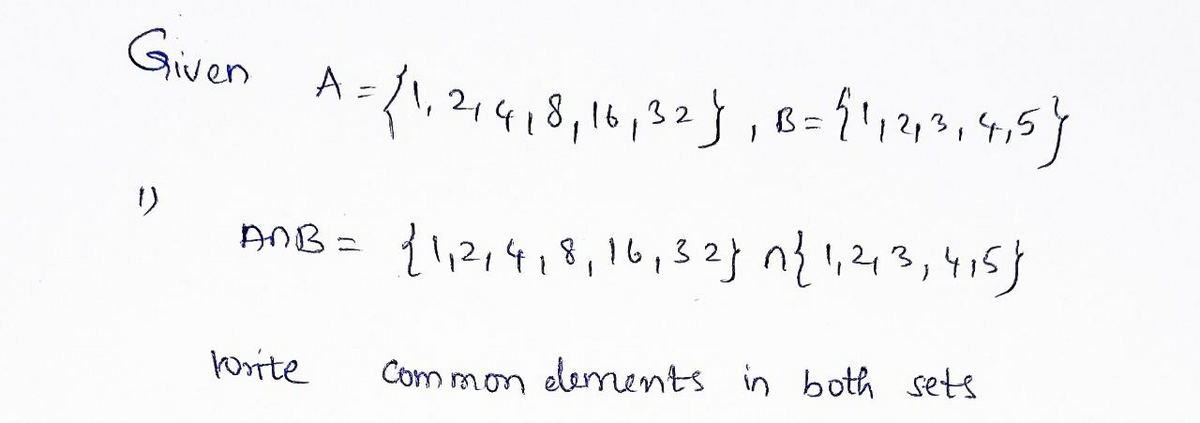 Given A = {1, 2, 4, 8, 16, 32}, B = {1, 2, 3, 4, 5}
1)
A∩B = {1, 2, 4, 8, 16, 32} ∩ {1, 2, 3, 4, 5}
write common elements in both sets